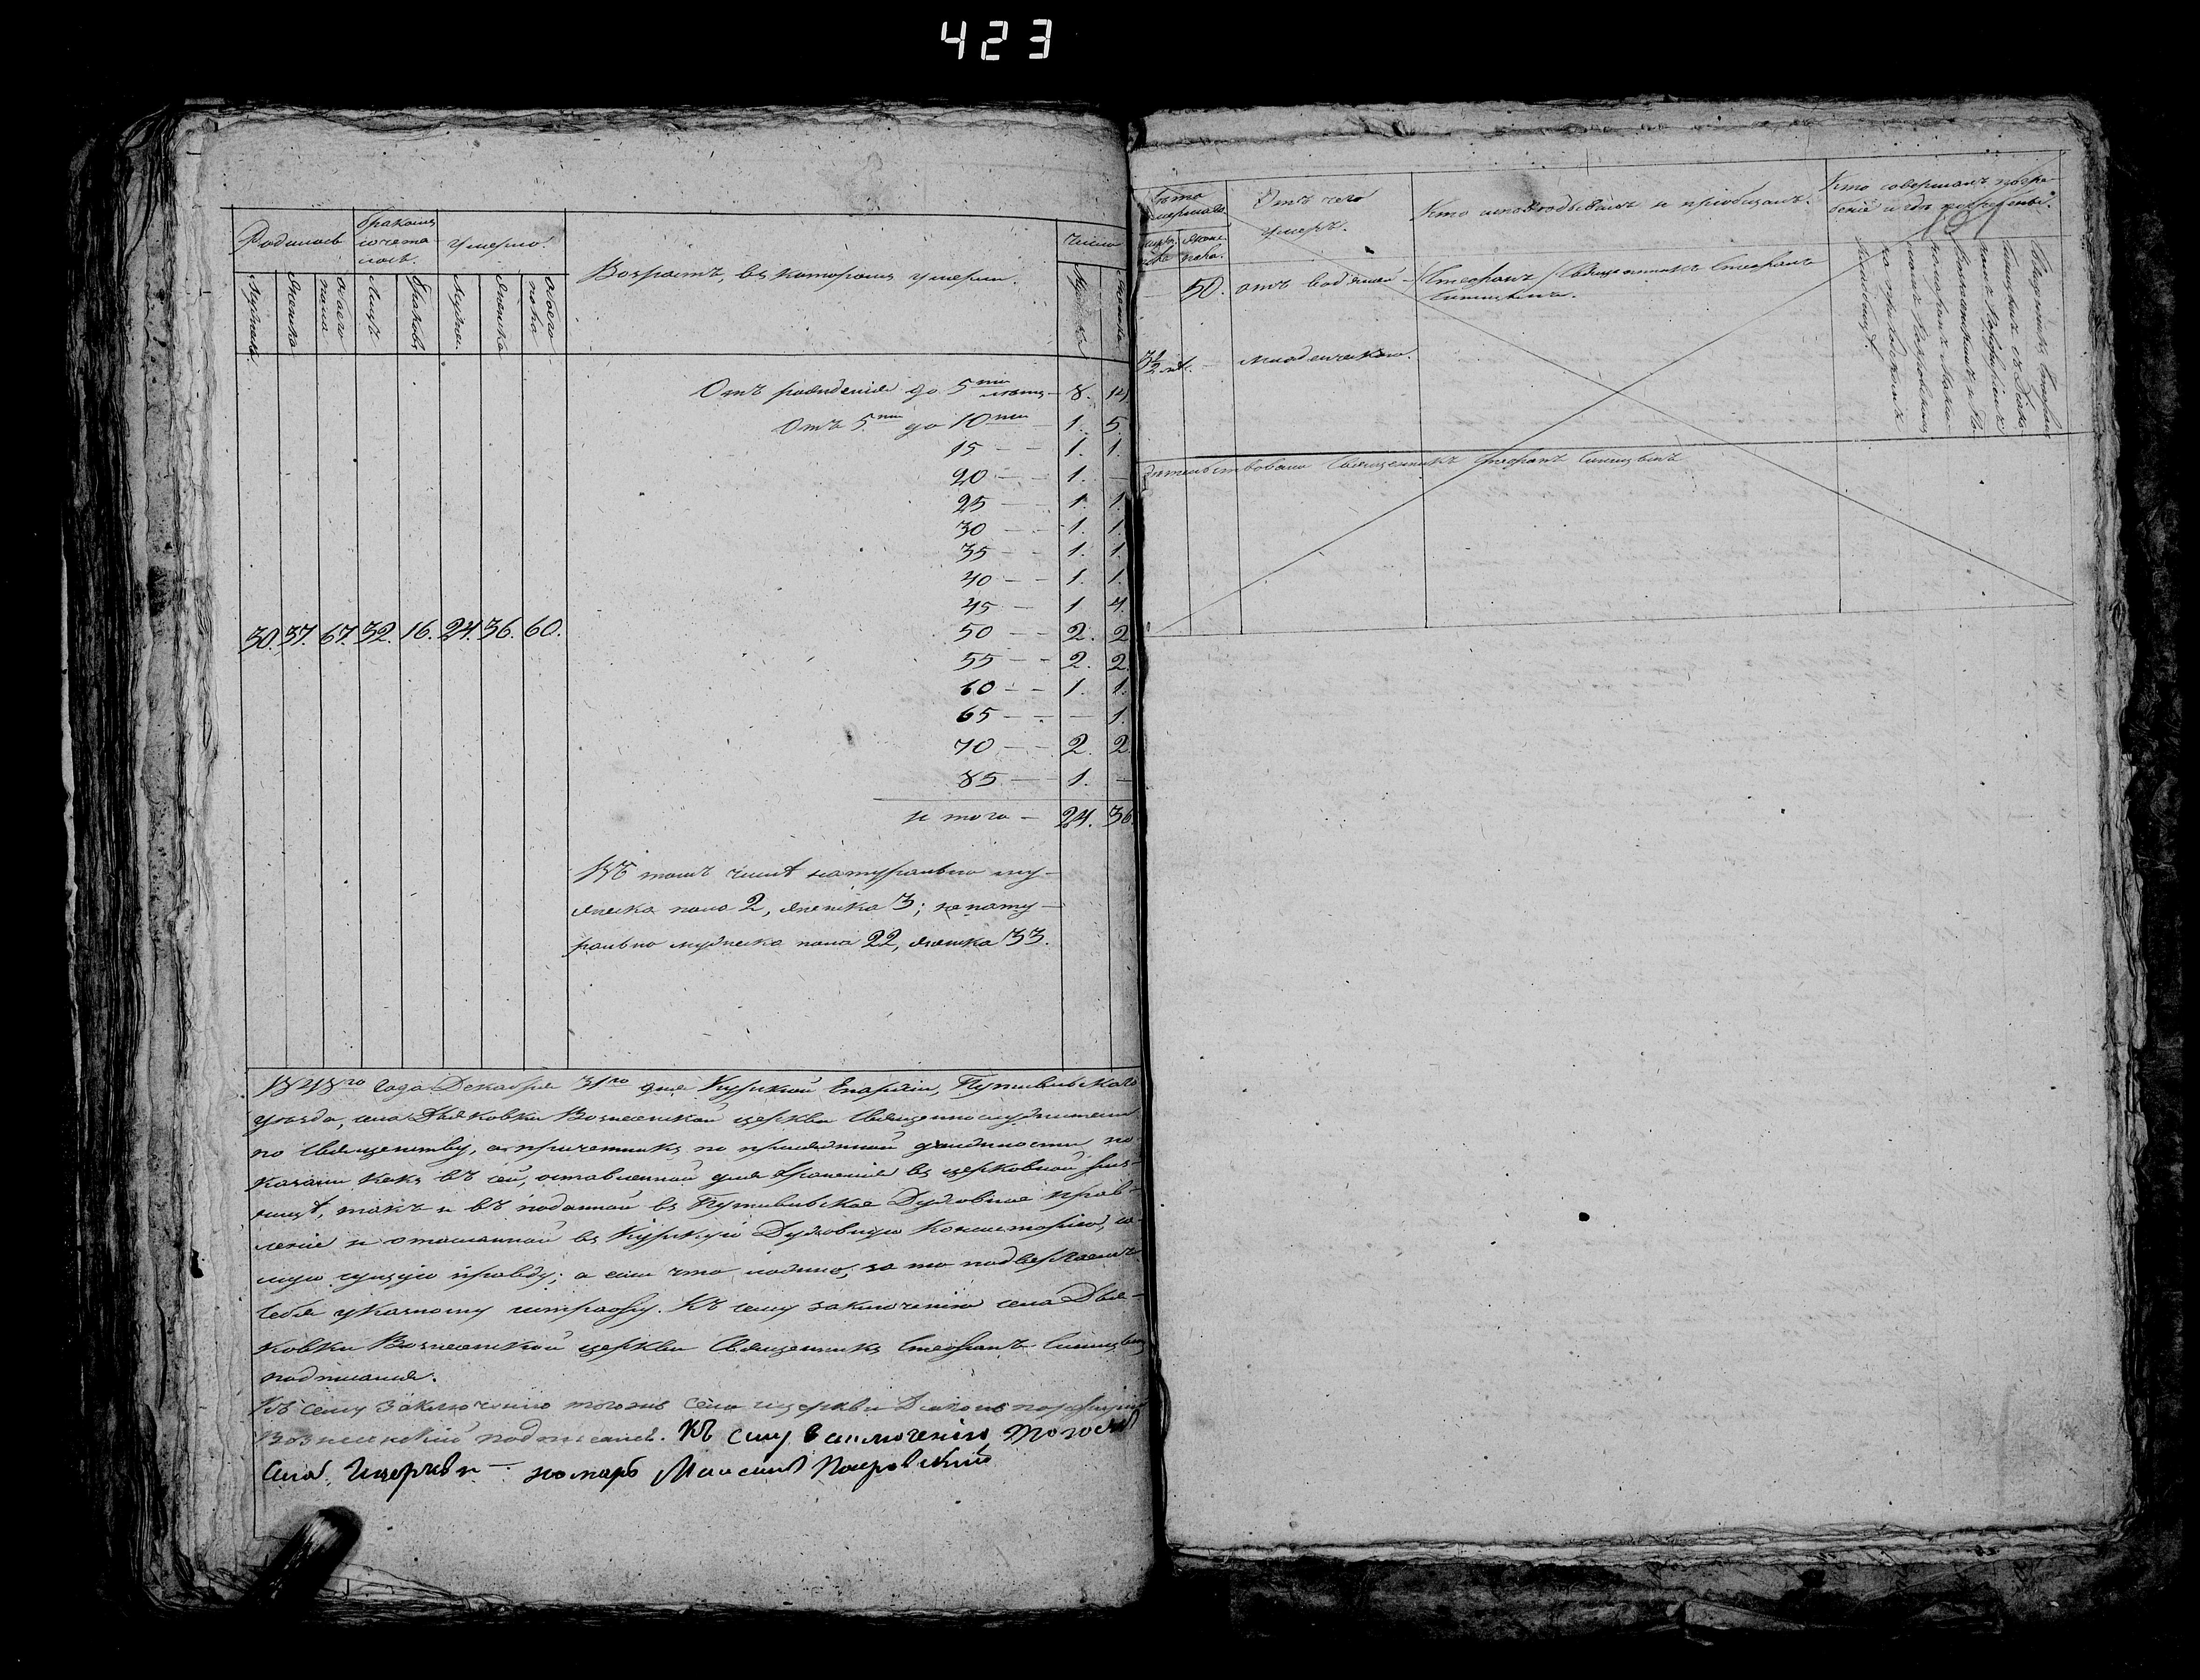 423
Родилось
бракомъ
сочета-
лось.
Умерло.
Возрастъ, въ которомъ умерли.
Число
Мужеска
Женска
обоего
пола
Лицъ
Браковъ
Мужеска
Женска
обоего
пола
Мужеска
Женска
Отъ рожденія до 5ти лѣтъ — 8. 14.
Отъ 5ти до 10ти — 1. 5.
15 — — 1. 1.
20 — — 1. —
25 — — 1. 1.
30 — — 1. 1.
35 — — 1. 1.
40 — — 1. 1.
45 — 1 4.
30. 37. 67. 32. 16. 24. 36. 60.
50 — — 2. 2
55 — — 2. 2.
60 — — 1. 1.
65 — — — 1.
70 — — 2. 2
85 — 1. —
и того — 24. 36.
Въ томъ числѣ натурально му-
жеска пола 2, женска 3; ненату-
рально мужеска пола 22, женска 33.
1848го года Декабря 31го дня Курской Епархіи, Путивльскаго
уезда, села Дьяковки Вознесенской церкви Священнослужители
по Священству, а причетникъ по присяжной должности, по-
казали какъ въ сей, оставленной для храненія въ церковной риз-
ницѣ, такъ и въ поданной въ Путивльское Духовное Прав-
леніе и отосланной въ Курскую Духовную Консисторію, са-
мую сущую правду; а если что ложно, за то подвергаемъ
себя указному штрафу. Къ сему заключенію села Дья-
ковки Вознесенской церкви Священникъ Стефанъ Синицынъ
подписался.
Къ сему заключенію тогожъ села ицеркви Діаконъ порфирій
Вознесенскій подписался. Къ сему заключенію тогожъ
села ицеркви — пономарь Максимъ Покровскій
Лѣта
умершаго
Мужес-
ка
Женс-
ка пола.
Отъ чего
умеръ.
Кто исповѣдывалъ и пріобщалъ.
Кто совершалъ погре-
беніе и гдѣ погребены.
191
— 50. отъ водяной — Стефанъ Священникъ Стефанъ
Синицынъ.
3½ лѣт. — младенческою.
Священникъ Стефанъ
Синицынъ съ Діако-
номъ Порфиріемъ
Вознесенскимъ и По-
номаремъ Макси-
момъ Покровскимъ
на приходскомъ
кладбищѣ
дѣтельствовали Священникъ Стефанъ Синицынъ